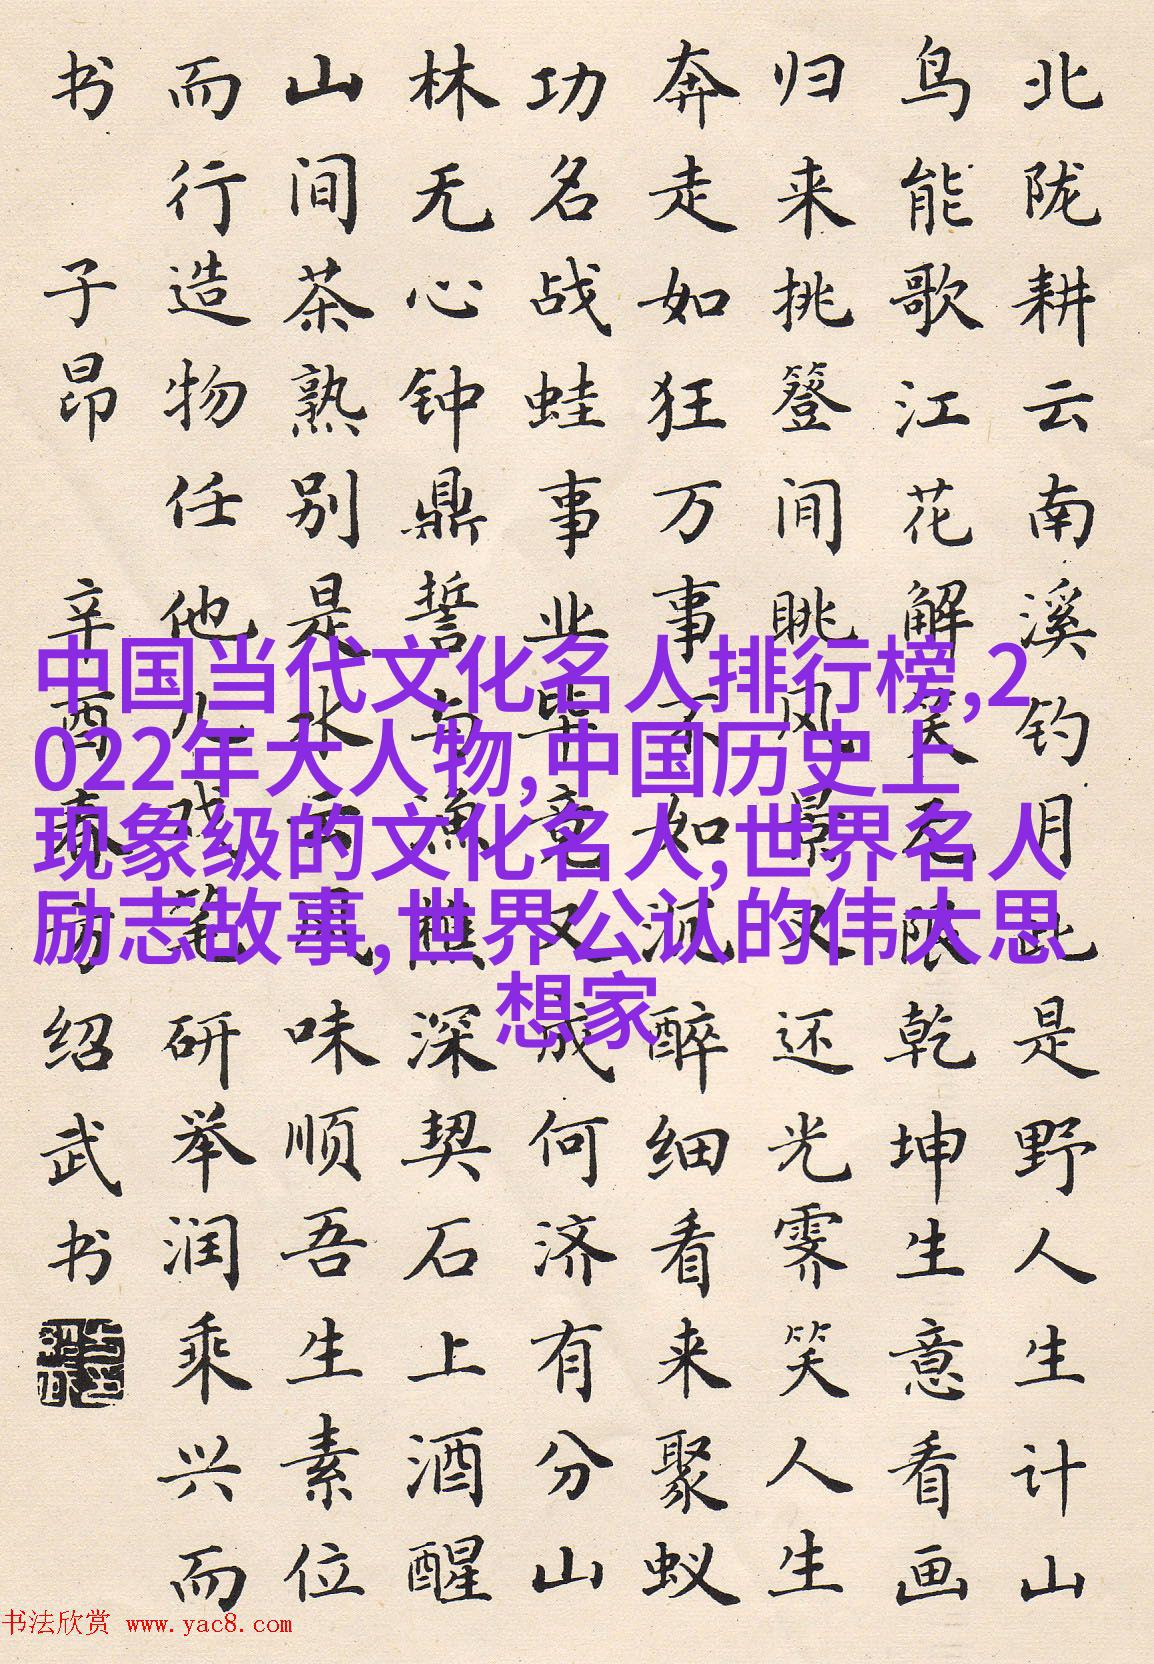 北陇耕云南溪钓月此是野人生计山
鸟能歌江花解笑无限乾坤生意看画
归来挑簦间眺风景又还光霁笑人生
奔走如狂万事不如沉醉细看来聚蚁
功名战蛙事业毕竟又成何济有分山
林无心钟鼎誓与渔樵深契石上酒醒
山间茶熟别是水云风味顺吾生素位
而行造物任他儿戏笔研举润乘兴而
书 子昂 辛酉春 绍武书
中国当代文化名人排行榜,2
022年大人物,中国历史上
现象级的文化名人,世界名人
励志故事,世界公认的伟大思
想家
书法欣赏 www.yac8.com